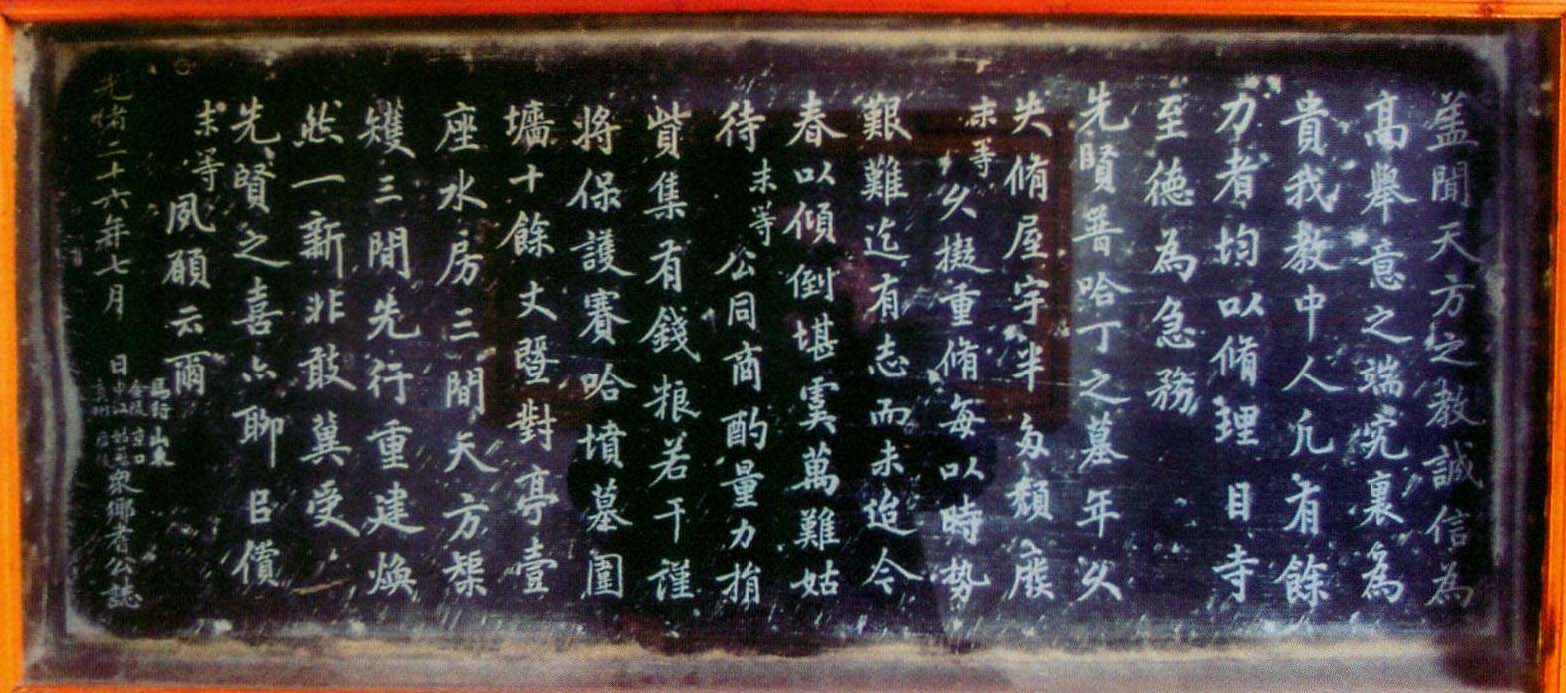 盖聞天方之教誠信為
髙舉意之端究裏為
貴我教中人凢有餘
力者均以脩理 目寺
至徳為急務
先賢普哈丁之墓年乆
失脩屋宇半多頽廢
末等乆擬重脩每以時势
艱難迄有志而未迨今
春以傾倒堪虞萬難姑
待末等公同商酌量力捐
貲集有錢粮若干謹
將保護賽哈墳墓圍
墻十餘丈暨對亭壹
座水房三間天方榘
矱三間先行重建煥
然一新非敢冀受
先賢之喜亦聊㠯償
末等夙願云爾
光緒二十六年七月 日
山東
眾鄉耆公誌